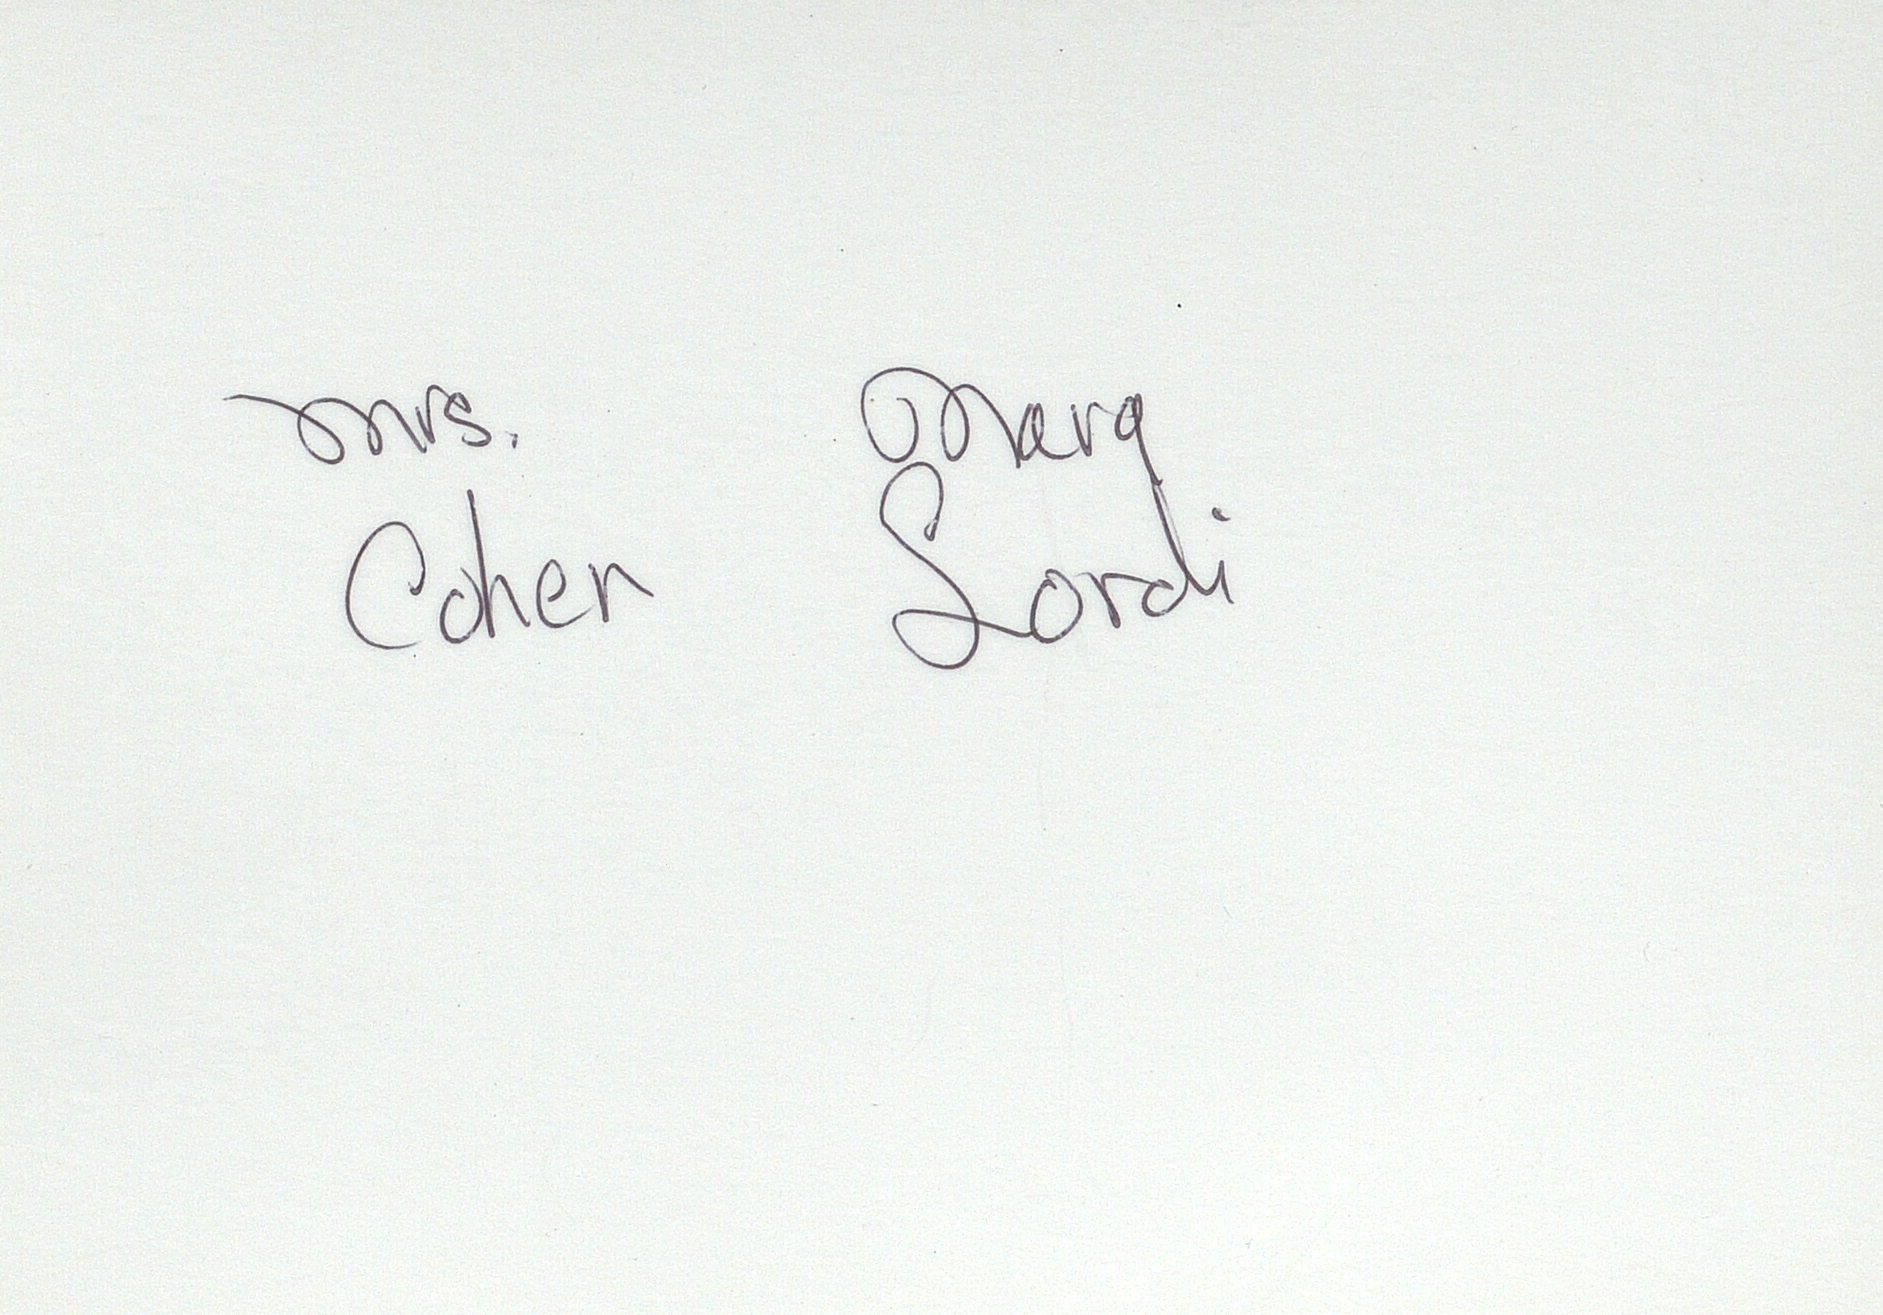 Mrs.
Cohen
Marg
Lordi